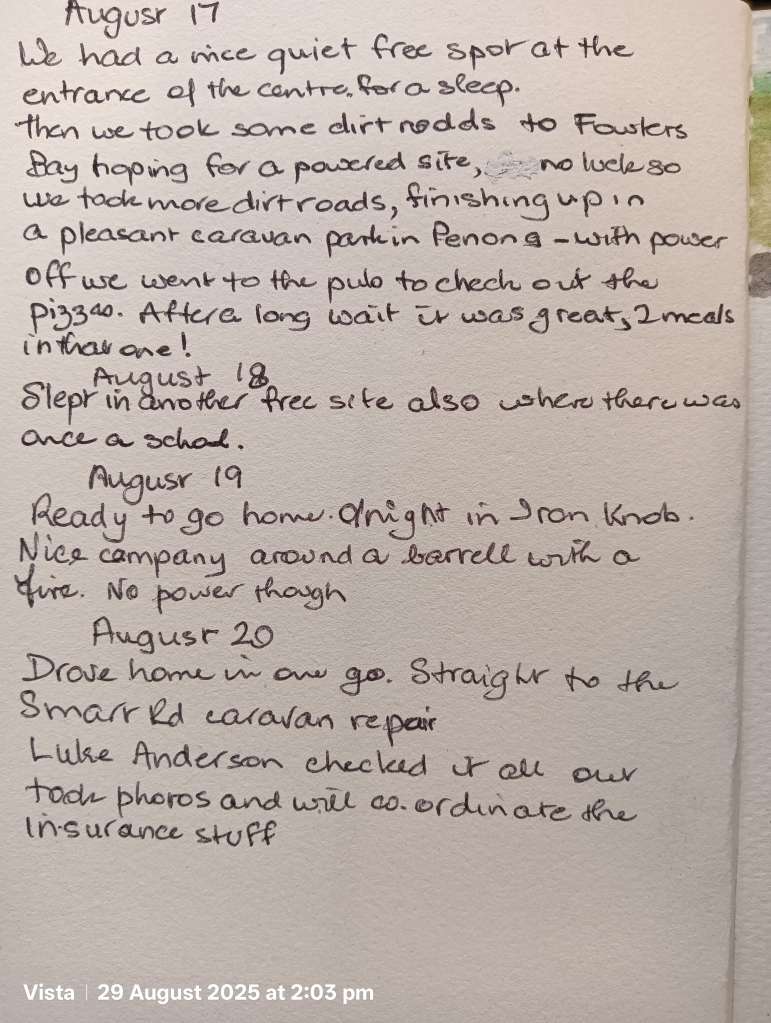 August 17
We had a nice quiet free spot at the
entrance of the centre, for a sleep.
Then we took some dirt rodds to Fowlers
Bay hoping for a powered site, no luck so
we took more dirt roads, finishing up in
a pleasant caravan park in Penong - with power
off we went to the pub to check out the
pizzas. After a long wait it was great, 2 meals
in that one!
August 18
Slept in another free site also where there was
once a school.
August 19
Ready to go home. A night in Iron Knob.
Nice company around a barrell with a
fire. No power though
August 20
Drove home in one go. Straight to the
Smart Rd caravan repair
Luke Anderson checked it all out
took photos and will co-ordinate the
insurance stuff
Vista | 29 August 2025 at 2:03 pm